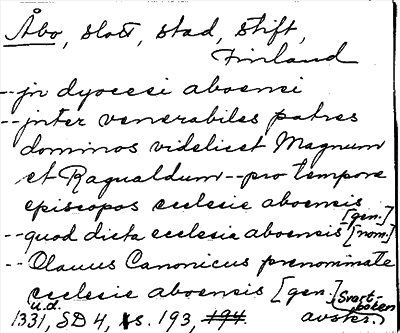 Åbo, slott, stad, stift,
Finland
--jn dyocesi aboensi
--jnter venerabiles patres
dominos videlicet Magnum
et Ragualdum--pro tempore
episcopos ecclesie aboensis [gen.]
--quod dicta ecclesia aboensis [nom.]
--Olauus Canonicus prenominate
ecclesie aboensis [gen.] (Svartboken
u.d. 1331, SD 4, s. 193, 194 avskr.)